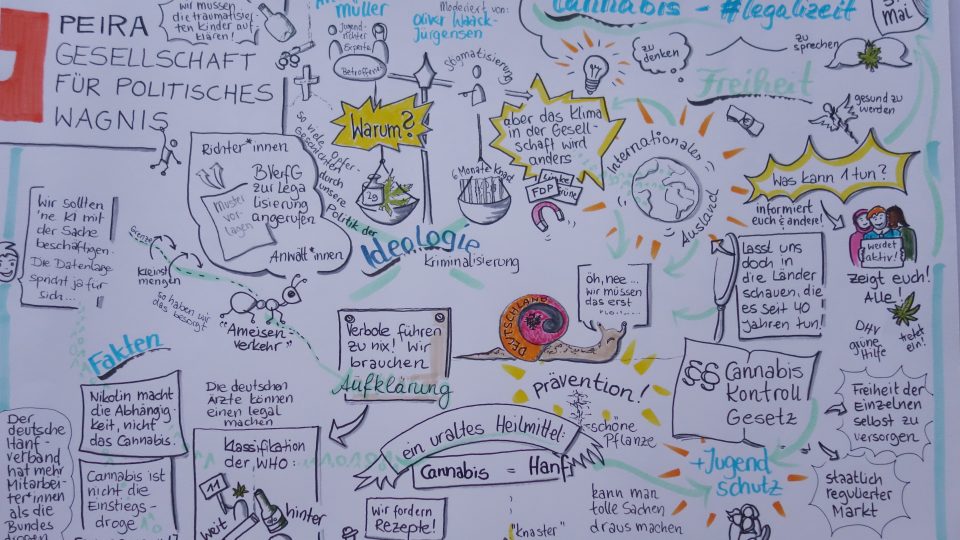 PEIRA
GESELLSCHAFT
FÜR POLITISCHES
WAGNIS
wir müssen
die traumatisier
ten Kinder auf
klären!
müller
Jugend-
richter
Experte
Betroffene
Moderiert von:
Oliver Waack-
Jürgensen
Stigmatisierung
Cannabis - #legalizeit
zu
denken
zu
sprechen
mal
Freiheit
gesund zu
werden
Warum?
aber das Klima
in der Gesell-
schaft wird
anders
FDP
Linke
Grün
6 Monate Knast
Internationales
Ausland
Was kann 1 tun?
informiert
euch & andere!
werdet
aktiv!
zeigt euch!
Alle!
DHV
grüne
Hilfe
tretet
ein!
Richter*innen
BVerfG
zur Lega
lisierung
angerufen
Muster
vor-
lagen
Anwält*innen
So viele Opfer-
Geschichten
durch
unsere
Politik der
Ideologie
Kriminalisierung
Wir sollten
'ne KI mit
der Sache
beschäftigen.
Die Datenlage
spricht ja für
sich...
Grenze
Kleinst
mengen
so haben wir
das besorgt
"Ameisen-
verkehr"
öh, nee...
wir müssen
das erst
DEUTSCHLAND
Lasst uns
doch in
die Länder
schauen, die
es seit 40
Jahren tun!
Verbote führen
zu nix! Wir
brauchen
Aufklärung
Fakten
Nikotin macht
die Abhängig-
keit, nicht
das Cannabis.
Die deutschen
Ärzte können
einen legal
machen
Prävention!
schöne
Pflanze
§§ Cannabis
Kontroll
Gesetz
Freiheit der
Einzelnen
selbst zu
versorgen
Der
deutsche
Hanf-
verband
hat mehr
Mitarbei-
ter*innen
als die
Bundes
Cannabis ist
nicht die
Einstiegs-
droge
Klassifikation
der WHO:
11
weit
hinter
ein uraltes Heilmittel:
Cannabis = Hanf
Wir fordern
Rezepte!
"Knaster"
kann man
tolle Sachen
draus machen
+Jugend
schutz
staatlich
regulierter
Markt